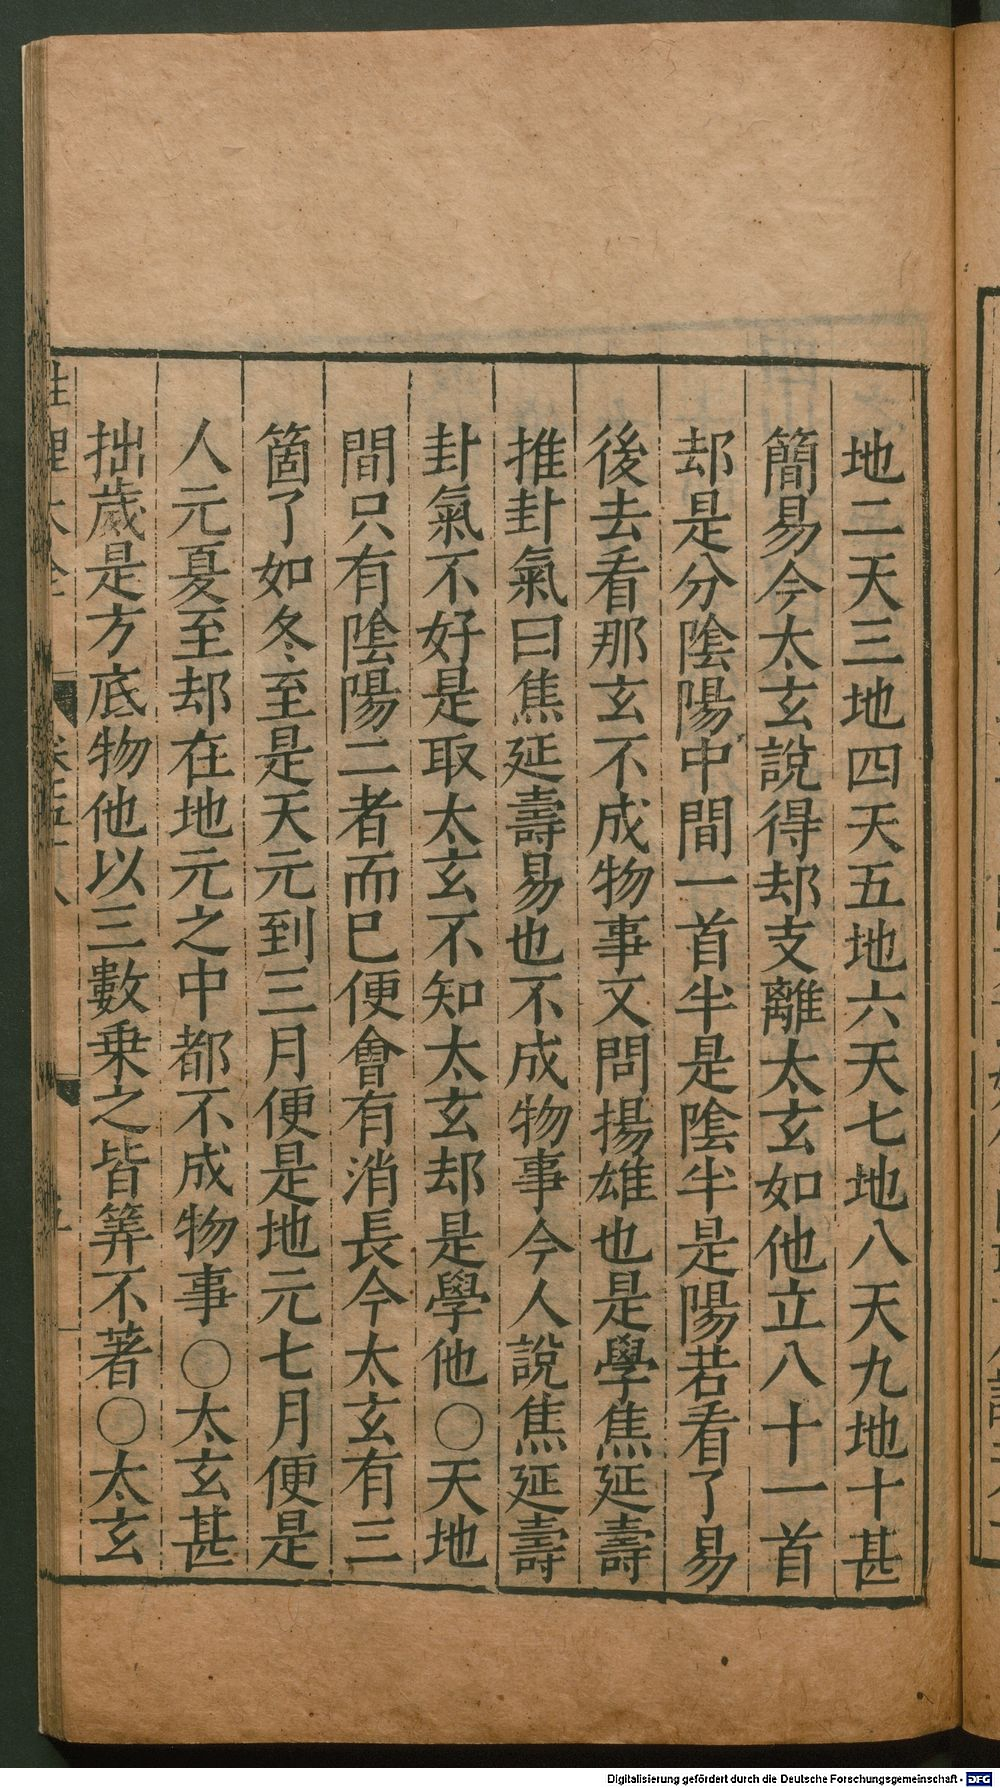 地二天三地四天五地六天七地八天九地十甚
簡易今太玄說得却支離太玄如他立八十一首
却是分陰陽中間一首半是陰半是陽若看了易
後去看那玄不成物事又問揚雄也是學焦延壽
推卦氣曰焦延壽易也不成物事今人說焦延壽
卦氣不好是取太玄不知太玄却是學他○天地
間只有陰陽二者而已便會有消長今太玄有三
箇了如冬至是天元到三月便是地元七月便是
人元夏至却在地元之中都不成物事○太玄甚
拙歲是方底物他以三數乗之皆筭不著○太玄
性理大全
Digitalisierung gefördert durch die Deutsche Forschungsgemeinschaft - DFG